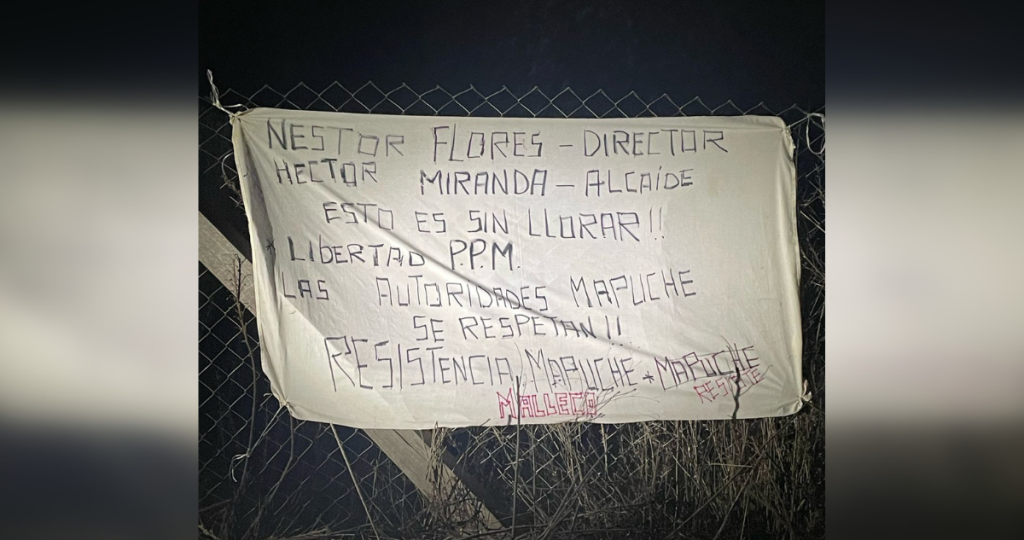 NESTOR FLORES - DIRECTOR
HECTOR MIRANDA - ALCAÍDE
ESTO ES SIN LLORAR!!
* LIBERTAD P.P.M.
LAS AUTORIDADES MAPUCHE
SE RESPETAN!!
RESISTENCIA MAPUCHE * MAPUCHE
MALLECO RESISTE